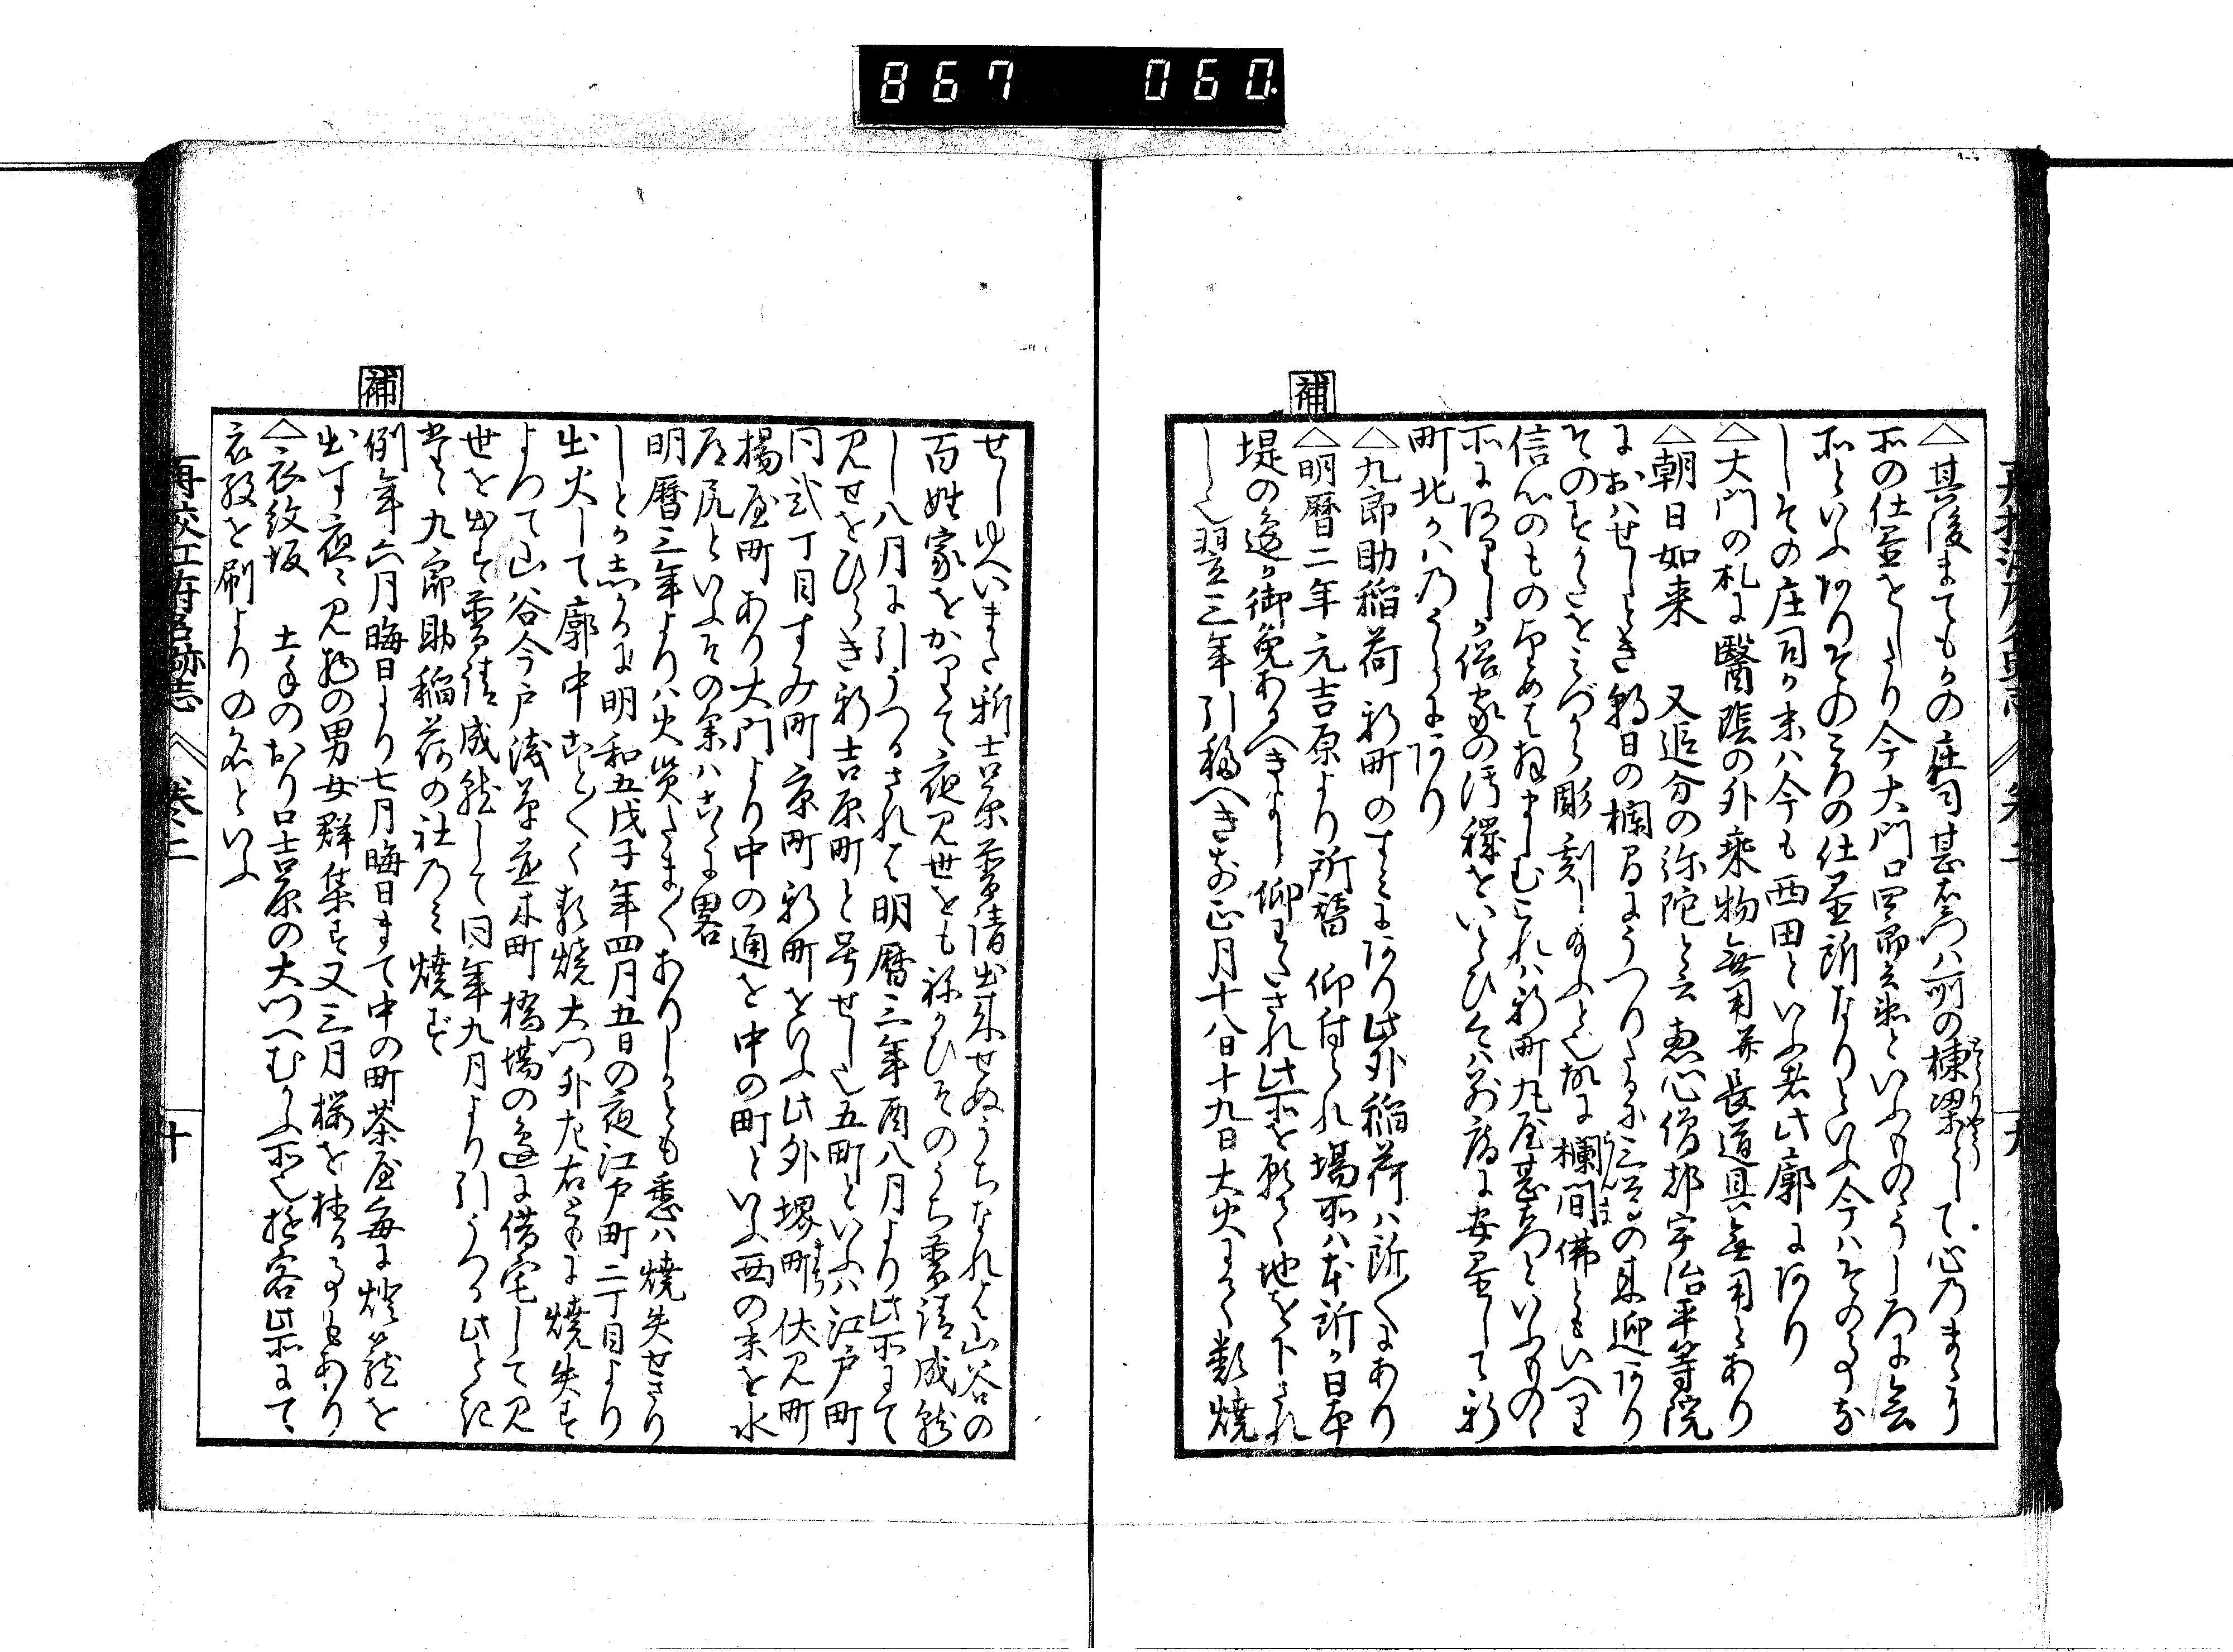 867 060
△其後まてもかの庄司甚右衛門ハ所の棟梁にして心のまゝに
所の仕置をしたり今大門口四郎兵衛といふものうしろに会
所といふ有りそのころの仕置所なりといふ今ハその事な
しその庄司か末ハ今も西田といふ者此廓にあり
△大門の札に醫陰の外乗物無用并長道具無用とあり
△朝日如来 又追分の弥陀と云恵心僧都宇治平等院
におハせしとき朝日の欄間にうつりたるに三尊の来迎あり
そのすかたをみづから彫刻し給ふと也故に欄間佛ともいへり
信心のものもとめて
所にありしか倡家の汚穢をいとひて今ハ別席に安置して新
町北かハのうらにあり
△九郎助稲荷 新町のすみにあり此外稲荷ハ所〱にあり
補
△明暦二年元吉原より所替 仰付られ場所ハ本所か日本
堤の邊か御免あるへきよし仰わたされ此所を願て地を下され
しと也翌三年引移へき前正月十八日十九日大火にて類焼
せしゆへいまた新吉原普請出来せぬうちなれは山谷の
百姓家をかりて夜見世をも祢かひそのうち普請成就
し八月に引うつされは明暦三年酉八月より此所にて
見せをひらき新吉原町と号せしと也五町といふハ江戸町
同弐丁目すみ町京町新町をいふ此外堺町伏見町
揚屋町あり大門より中の通を中の町といふ西の末を水
戸尻といふその余ハこゝに畧
明暦三年より八火災たま〱ありしかとも悉ハ焼失せさり
しとかしかるに明和五戊子年四月五日の夜江戸町二丁目より
出火して廓中こと〱く類焼大門外左右ともに焼失す
よつて山谷今戸浅草並木町橋場の邊に借宅して見
世を出す普請成就して同年九月より引うつる此とき
九郎助稲荷の社のミ焼す
補
例年六月晦日より七月晦日まて中の町茶屋毎に燈籠を
出す夜〻見物の男女群集す又三月櫻を植る事もあり
△衣紋坂 土手のおり口吉原の大門へむかふ所也遊客此所にて
衣紋を刷よりの名といふ
再校江府名跡志 巻之二 十